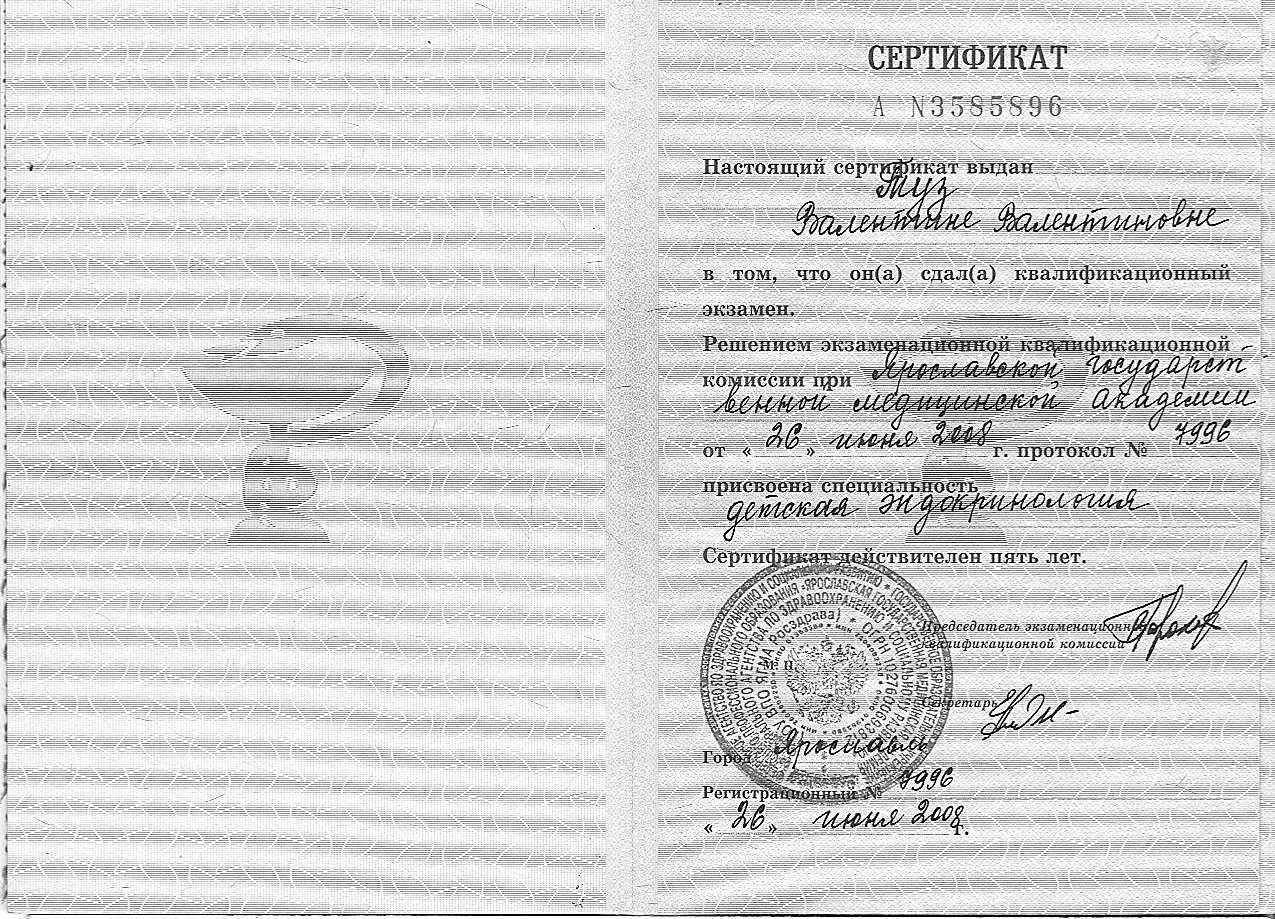 СЕРТИФИКАТ
А N3585896
Настоящий сертификат выдан
Туз
Валентине Валентиновне
в том, что он(а) сдал(а) квалификационный
экзамен.
Решением экзаменационной квалификационной
комиссии при Ярославской государст
венной медицинской академии
от « 26 » июня 2008 г. протокол № 7996
присвоена специальность
детская эндокринология
Сертификат действителен пять лет.
Председатель экзаменационно
квалификационной комиссии
М. П.
Секретарь
Город Ярославль
Регистрационный № 7996
« 26 » июня 2008 г.